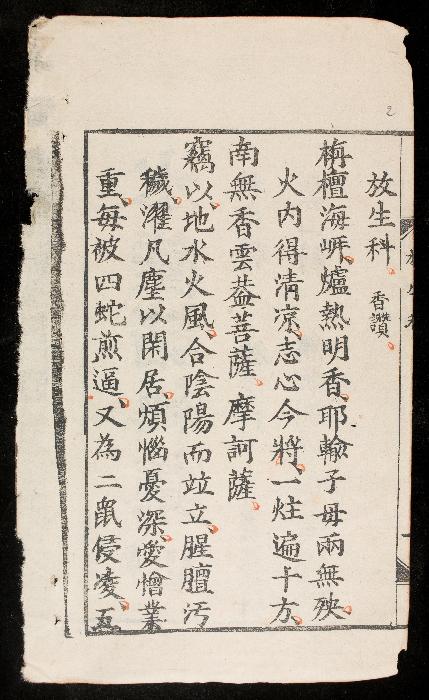 放生科 香讚
栴檀海岍爐熱明香耶輸子母兩無殃
火内得清凉志心今將一炷遍十方
南無香雲葢菩薩摩訶薩
竊以地水火風合陰陽而竝立腥膻汚
穢濯凡塵以閑居煩惱憂深愛憎業
重每被四蛇煎逼又為二鼠侵凌五
2